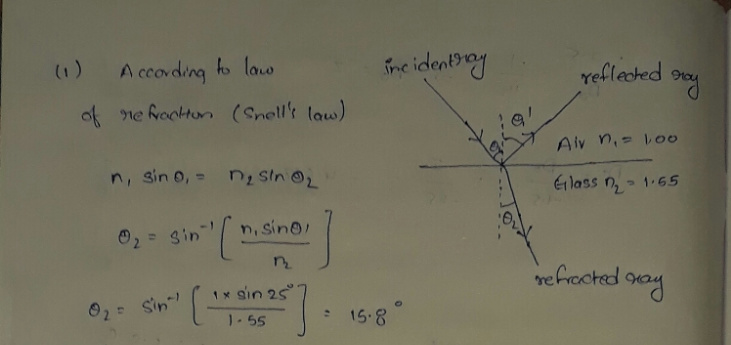 (1) According to law
of refraction (Snell's law)
n₁ sin θ₁ = n₂ sin θ₂
θ₂ = sin⁻¹ [ n₁ sin θ₁ / n₂ ]
θ₂ = sin⁻¹ [ 1 x sin 25° / 1.55 ] = 15.8°
incident ray
reflected ray
θ'
θ
Air n₁ = 1.00
Glass n₂ = 1.55
θ₂
refracted ray